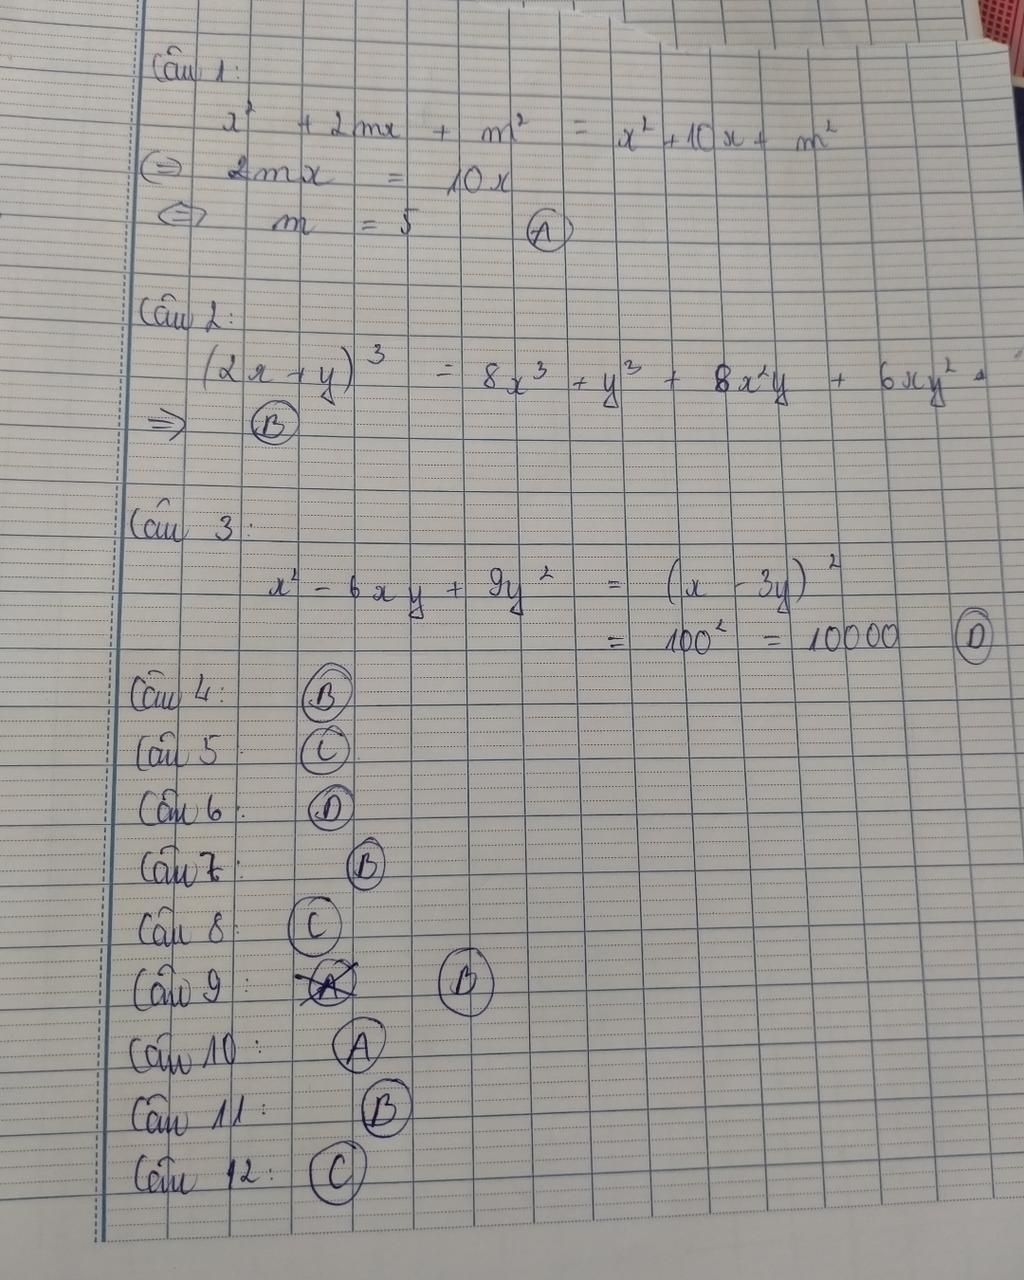 Câu 1:
x² + 2mx + m² = x² + 10x + m²
⇔ 2mx = 10x
⇔ m = 5 A
Câu 2:
(2x + y)³ = 8x³ + y³ + 8x²y + 6xy²
⇒ B
Câu 3:
x² - 6xy + 9y² = (x - 3y)²
= 100² = 10000 D
Câu 4: B
Câu 5 C
Câu 6: D
Câu 7: B
Câu 8: C
Câu 9: A B
Câu 10: A
Câu 11: B
Câu 12: C